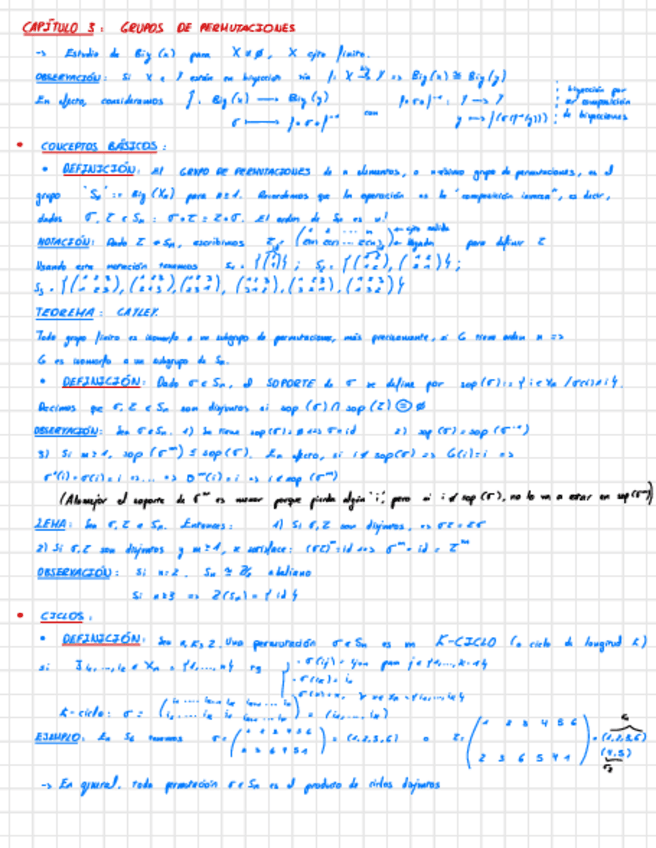 CAPÍTULO 3: GRUPOS DE PERMUTACIONES
-> Estudio de Bij (x) para X ≠ ∅, X cjto finito.
OBSERVACIÓN: Si X e Y están en biyección vía f: X -> Y => Bij (x) ≅ Bij (y)
En efecto, consideramos f: Bij (x) -> Bij (y) con f∘σ∘f⁻¹: Y -> Y biyección por
σ -> f∘σ∘f⁻¹ y -> f(σ(f⁻¹(y))) ser composición de biyecciones
• CONCEPTOS BÁSICOS:
• DEFINICIÓN: El GRUPO DE PERMUTACIONES de n elementos, o n-ésimo grupo de permutaciones, es el
grupo Sn := Bij (Xn) para n≥1. Recordemos que la operación es la "composición inversa", es decir,
dados σ, τ ∈ Sn: σ∗τ = τ∘σ. El orden de Sn es n!
NOTACIÓN: Dado τ ∈ Sn, escribimos para definir τ
Usando esta notación tenemos S₁ = {(1 1)}; S₂ = {(1 2 1 2), (1 2 2 1)};
TEOREMA: CAYLEY.
Todo grupo finito es isomorfo a un subgrupo de permutaciones, más precisamente, si G tiene orden n =>
G es isomorfo a un subgrupo de Sn.
• DEFINICIÓN: Dado σ ∈ Sn, el SOPORTE de σ se define por sop (σ) = {i ∈ Xn / σ(i) ≠ i}.
Decimos que σ, τ ∈ Sn son disjuntos si sop (σ) ∩ sop (τ) = ∅
OBSERVACIÓN: Sea σ ∈ Sn. 1) Se tiene sop (σ) = ∅ <=> σ = id 2) sop (σ) = sop (σ⁻¹)
3) Si m≥1, sop (σᵐ) ⊆ sop (σ). En efecto, si i ∉ sop(σ) => σ(i) = i =>
σ²(i) = σ(i) = i => ... => σᵐ(i) = i => i ∉ sop (σᵐ)
(A lo mejor el soporte de σᵐ es menor porque pierda algún "i", pero si i ∉ sop (σ), no lo va a estar en sop (σᵐ))
LEMA: Sea σ, τ ∈ Sn. Entonces: 1) Si σ, τ son disjuntos, => στ = τσ
2) Si σ, τ son disjuntos y m≥1, se satisface: (στ)ᵐ = id <=> σᵐ = id = τᵐ
OBSERVACIÓN: Si n=2, Sn ≅ Z₂ abeliano
Si n≥3 => Z(Sn) = {id}
• CICLOS:
• DEFINICIÓN: Sea Una permutación σ ∈ Sn es un K-CICLO (o ciclo de longitud K)
si ∃ i₁, ..., iₖ ∈ Xn = {1, ..., n} tq
K-ciclo: σ = = (i₁, ..., iₖ)
EJEMPLO: En S₆ tenemos σ = = (1,2,3,6) o τ = (1 2 3 4 5 6 2 3 6 5 4 1) = (1,2,3,6)
(4,5)
-> En general, toda permutación σ ∈ Sn es el producto de ciclos disjuntos